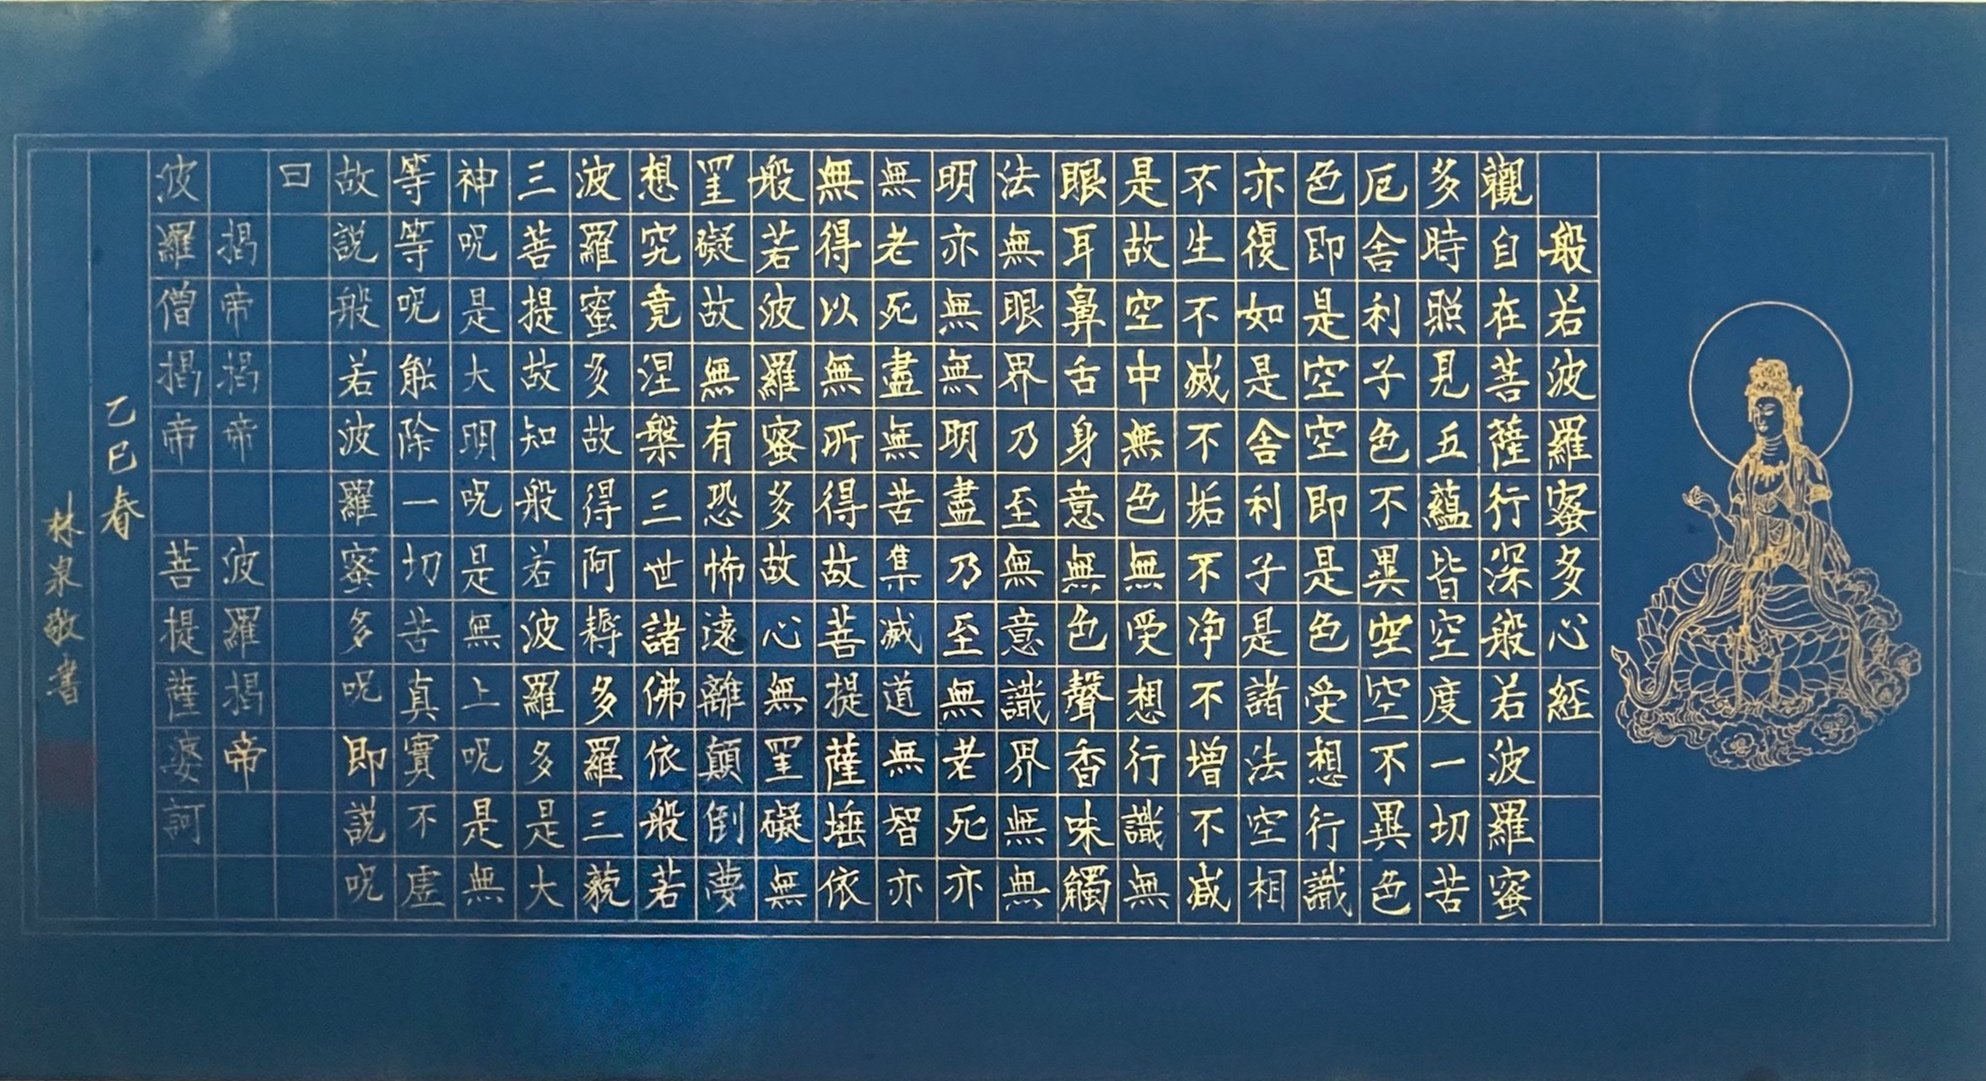 般若波羅蜜多心經
觀自在菩薩行深般若波羅蜜
多時照見五蘊皆空度一切苦
厄舍利子色不異空空不異色
色即是空空即是色受想行識
亦復如是舍利子是諸法空相
不生不滅不垢不净不增不减
是故空中無色無受想行識無
眼耳鼻舌身意無色聲香味觸
法無眼界乃至無意識界無無
明亦無無明盡乃至無老死亦
無老死盡無苦集滅道無智亦
無得以無所得故菩提薩埵依
般若波羅蜜多故心無罣礙無
罣礙故無有恐怖遠離顛倒夢
想究竟涅槃三世諸佛依般若
波羅蜜多故得阿耨多羅三藐
三菩提故知般若波羅多是大
神呪是大明呪是無上呪是無
等等呪能除一切苦真實不虛
故說般若波羅蜜多呪即說呪
曰
揭帝揭帝 波羅揭帝
波羅僧揭帝 菩提薩婆訶
乙巳春
林泉敬書